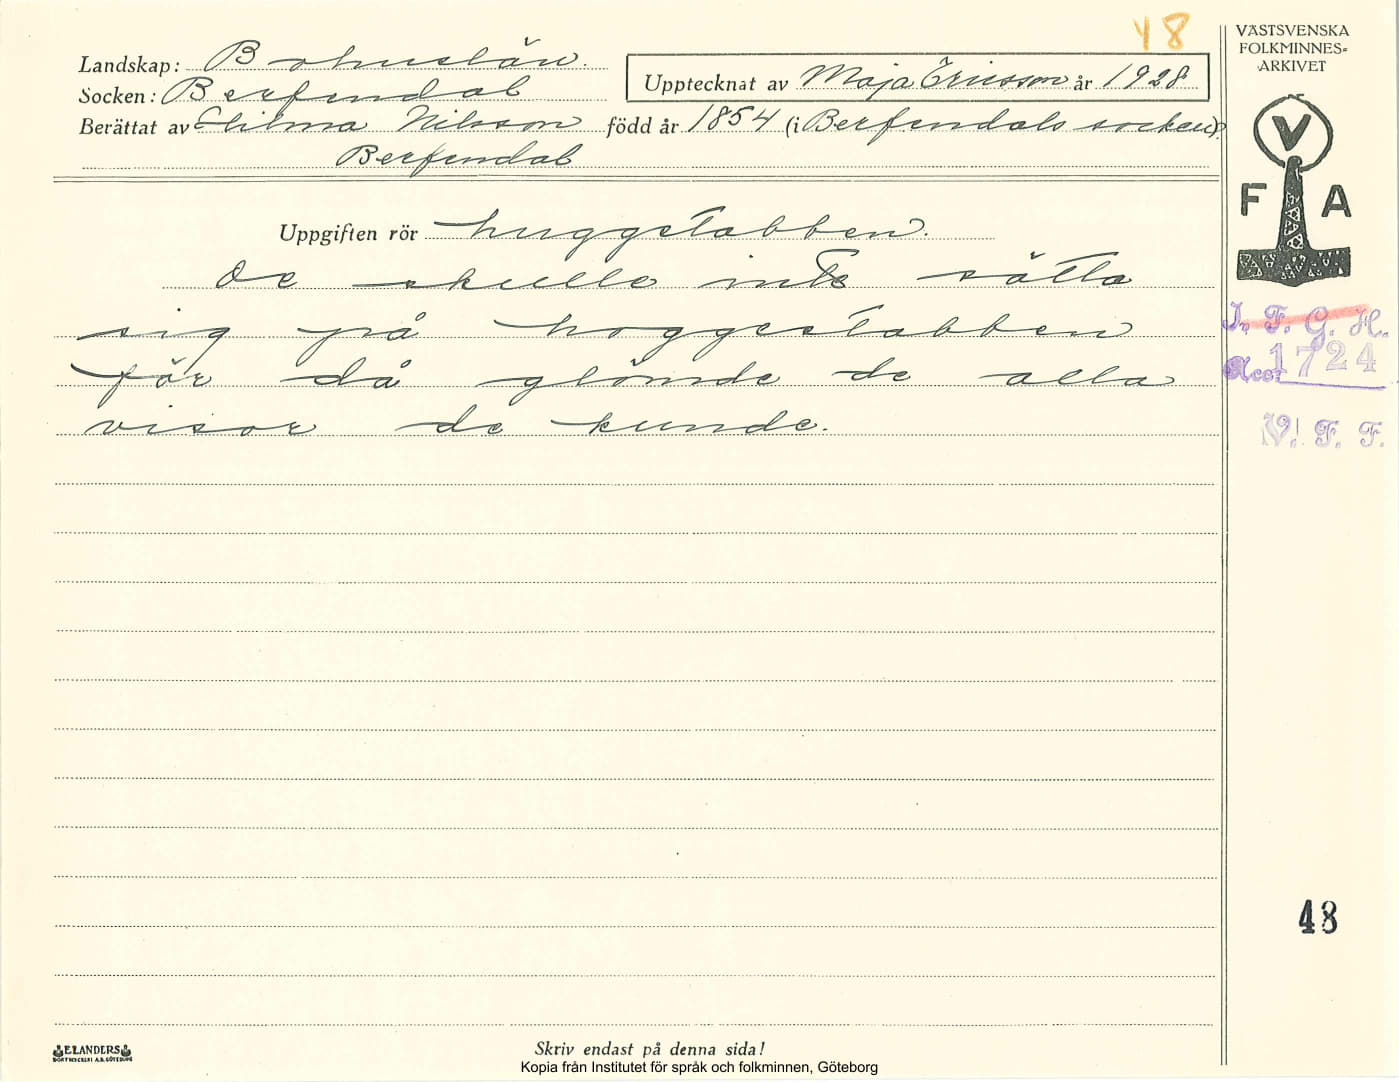 48
VÄSTSVENSKA
FOLKMINNES-
ARKIVET
Landskap: Bohuslän.
Socken: Berfendal
Upptecknat av Maja Ericsson år 1928
Berättat av Hilma Nilsson född år 1854 (i Berfendals socken).
Berfendal
V
F A
Uppgiften rör huggstabben.
De skulle inte sätta
sig på hoggestabben
för då glömde de alla
visor de kunde.
I. F. G. H.
Acc. 1724
V. F. F.
48
ELANDERS
BOKTRYCKERI A.B. GÖTEBORG
Skriv endast på denna sida!
Kopia från Institutet för språk och folkminnen, Göteborg